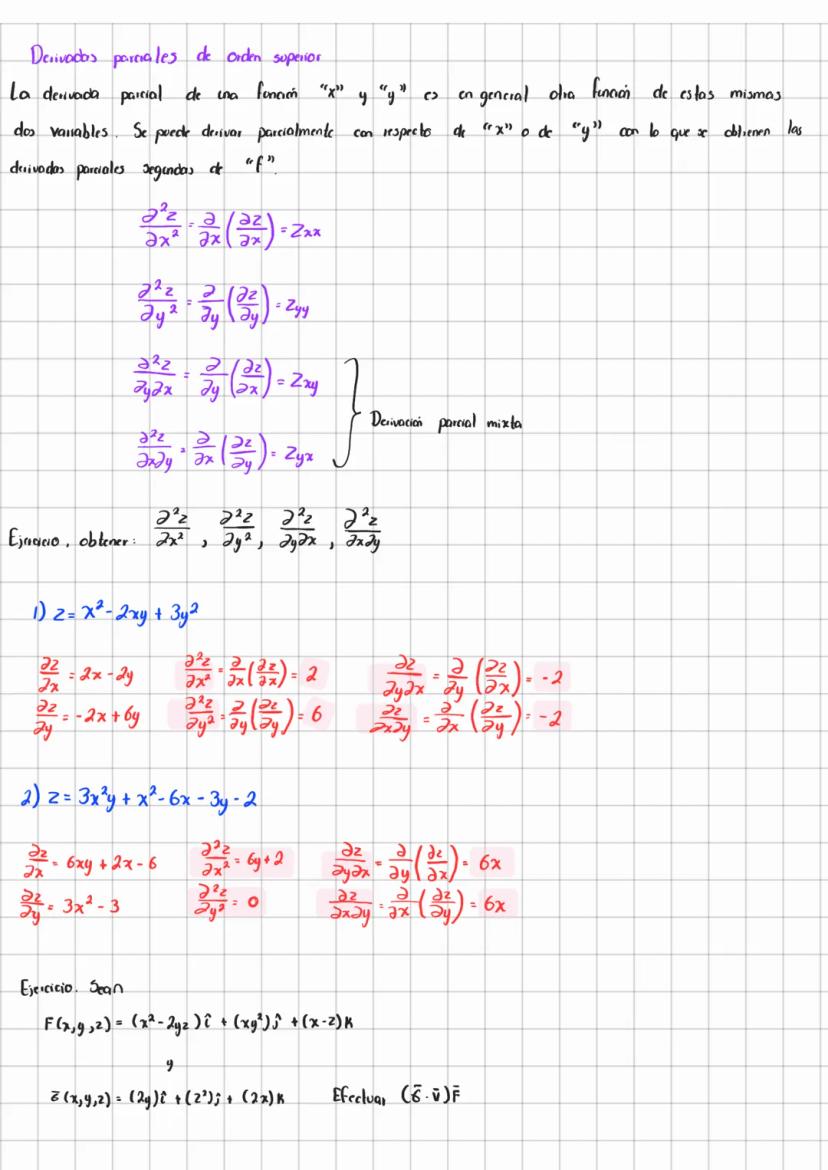 Derivadas parciales de orden superior
La derivada parcial de una función "x" y "y" es en general otra función de estas mismas
dos variables. Se puede derivar parcialmente con respecto de "x" o de "y" con lo que se obtienen las
derivadas parciales segundas de "f".
∂²z/∂x² = ∂/∂x (∂z/∂x) = Zxx
∂²z/∂y² = ∂/∂y (∂z/∂y) = Zyy
∂²z/∂y∂x = ∂/∂y (∂z/∂x) = Zxy
Derivación parcial mixta
∂²z/∂x∂y = ∂/∂x (∂z/∂y) = Zyx
Ejercicio, obtener: ∂²z/∂x², ∂²z/∂y², ∂²z/∂y∂x, ∂²z/∂x∂y
1) z = x² - 2xy + 3y²
∂z/∂x = 2x - 2y ∂²z/∂x² = ∂/∂x (∂z/∂x) = 2 ∂z/∂y∂x = ∂/∂y (∂z/∂x) = -2
∂z/∂y = -2x + 6y ∂²z/∂y² = ∂/∂y (∂z/∂y) = 6 ∂z/∂x∂y = ∂/∂x (∂z/∂y) = -2
2) z = 3x²y + x² - 6x - 3y - 2
∂z/∂x = 6xy + 2x - 6 ∂²z/∂x² = 6y + 2 ∂z/∂y∂x = ∂/∂y (∂z/∂x) = 6x
∂z/∂y = 3x² - 3 ∂²z/∂y² = 0 ∂z/∂x∂y = ∂/∂x (∂z/∂y) = 6x
Ejercicio. Sean
F(x,y,z) = (x² - 2yz)î + (xy²)ĵ + (x-z)k
y
(x,y,z) = (2y)î + (z²)j + (2x)k Efectuar